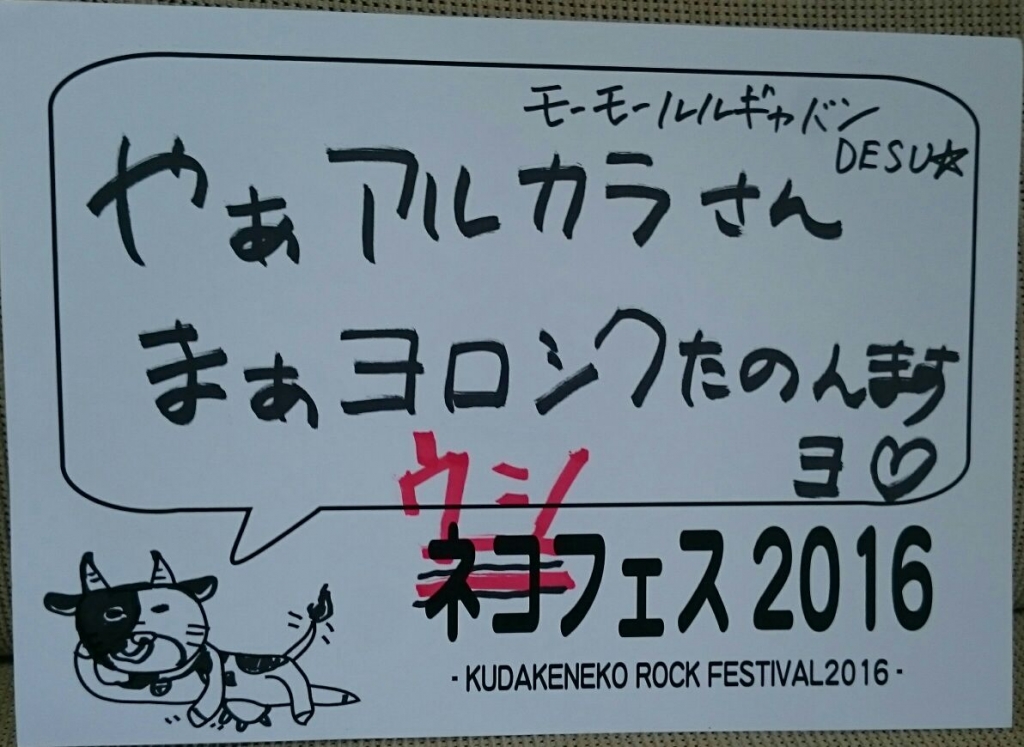 モーモールルギャバン
DESU☆
やぁアルカラさん
まぁヨロシクたのんます
ヨ♡
ウシ
ネコフェス2016
- KUDAKENEKO ROCK FESTIVAL2016 -